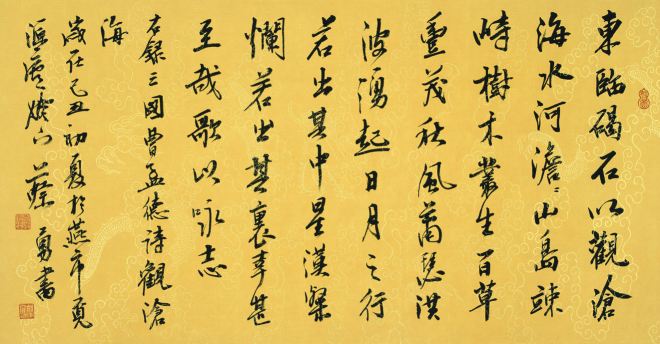 東臨碣石以觀滄
海水河澹〻山島竦
峙樹木叢生百草
豐茂秋風蕭瑟洪
波湧起日月之行
若出其中星漢粲
爛若出其裏幸甚
至哉歌以詠志
右錄三國曹孟德詩觀滄
海
歲在己丑初夏於燕市覓
漚廬燈下蔡勇書